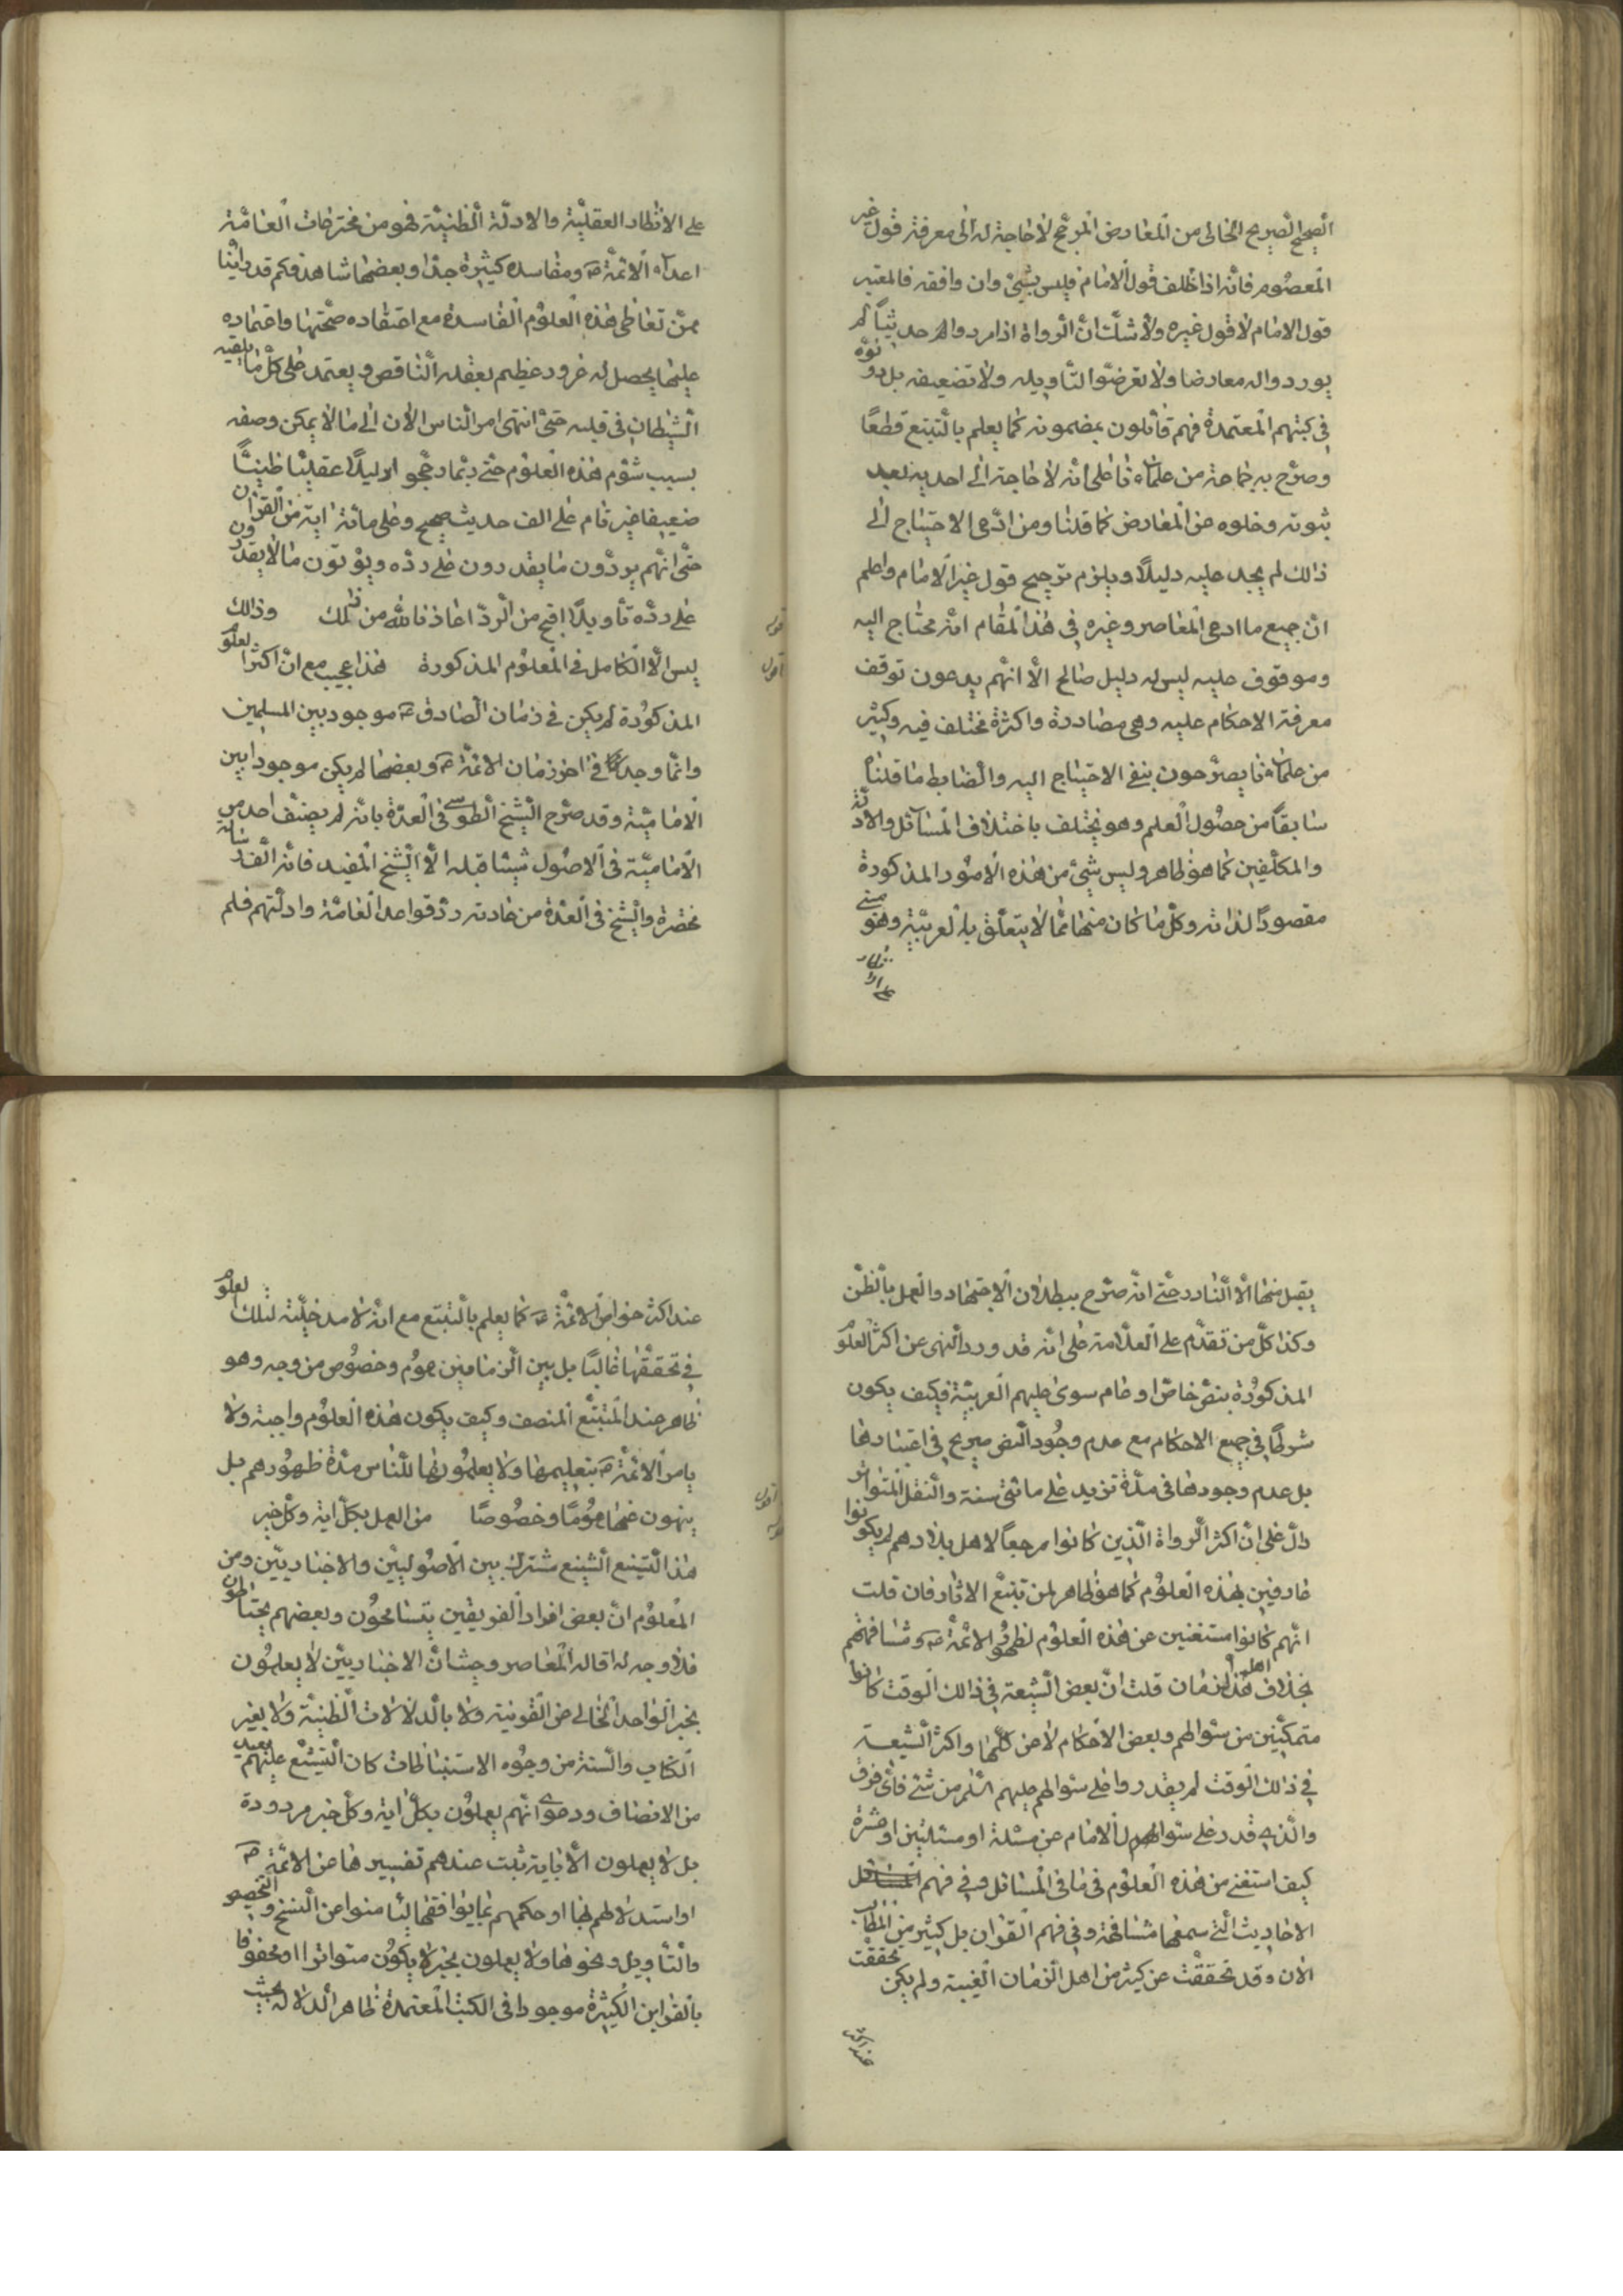 الصحيح الصريح الخالى من المعارض المرجح لا حاجة له الى معرفة قول غير
المعصوم فانه اذا خالف قول الامام فليس بشئ وان وافقه فالمعتبر
قول الامام لا قول غيره ولا شك ان الرواة اذا مردوا له حديثاً لم
يوردوا له معارضا ولا تعرضوا لتاويله ولا تضعيفه بل دونوه
فى كتبهم المعتمدة فهم قائلون بمضمونه كما يعلم بالتتبع قطعاً
وصرح به جماعة من علمائنا على انه لا حاجة الى احد به بعد
ثبوته وخلوه عن المعارض كما قلنا ومن ادعى الاحتياج الى
ذلك لم يجد عليه دليلاً ويلزم ترجيح قول غير الامام واعلم
ان جميع ما ادعى المعاصر وغيره فى هذا المقام انه محتاج اليه
وموقوف عليه ليس له دليل صالح الا انهم يدعون توقف
معرفة الاحكام عليه وهى مصادرة واكثره مختلف فيه وكثير
من علمائنا يصرحون بنفى الاحتياج اليه والضابط ما قلناه
سابقاً من حصول العلم وهو يختلف باختلاف المسائل والادلة
والمكلفين كما هو ظاهر وليس شئ من هذه الامور المذكورة
مقصوداً لذاته وكل ما كان منها مما لا يتعلق بالعربية وهو مبنى
على الانظار
على الانظار العقلية والادلة الظنية فهو من مخترعات العامة
اعداء الائمة ع ومفاسده كثيرة جدا وبعضها شاهد فكم قد راينا
ممن تعاطى هذه العلوم الفاسدة مع اعتقاده صحتها واعتماده
عليها يحصل له غرور عظيم بعقله الناقص ويعتمد على كل ما يلقيه
الشيطان فى قلبه حتى انتهى امر الناس الان الى ما لا يمكن وصفه
بسبب شؤم هذه العلوم حتى ربما رجحوا دليلاً عقلياً ظنياً
ضعيفا غير تام على الف حديث صحيح وعلى مائة اية من القران
حتى انهم يردون ما يقدرون على رده ويؤولون ما لا يقدرون
على رده تأويلاً اقبح من الرد اعاذنا الله من ذلك وذلك
قوله
ليس الا الكامل فى العلوم المذكورة هذا عجيب مع ان اكثر العلوم
اقول
المذكورة لم يكن فى زمان الصادق ع موجود بين المسلمين
وانما وجد فى اخر زمان الائمة ع وبعضها لم يكن موجودا بين
الامامية وقد صرح الشيخ الطوسى فى العدة بانه لم يصنف احد من
الامامية فى الاصول شيئا قبله الا الشيخ المفيد فانه الف رسالة
مختصرة والشيخ فى العدة من عادته رد قواعد العامة وادلتهم فلم
يقبل منها الا النادر حتى انه صرح ببطلان الاجتهاد والعمل بالظن
وكذا كل من تقدم على العلامة على انه قد ورد النهى عن اكثر العلوم
المذكورة بنص خاص او عام سوى علم العربية فكيف يكون
شرطا فى جميع الاحكام مع عدم وجود النص صريح فى اعتبارها
بل عدم وجودها فى مدة تزيد على مائتى سنة والنقل المتواتر
دال على ان اكثر الرواة الذين كانوا مرجعاً لاهل بلادهم لم يكونوا
عارفين بهذه العلوم كما هو ظاهر لمن تتبع الاثار فان قلت
انهم كانوا مستغنين عن هذه العلوم لظهور الائمة ع ومشافهتهم
بخلاف اهل هذا الزمان قلت ان بعض الشيعة فى ذلك الوقت كانوا
متمكنين من سؤالهم وبعض الاحكام لا عن كلها واكثر الشيعة
فى ذلك الوقت لم يقدروا على سؤالهم عليهم السلم من شئ فاى فرق
والذى قدر على سؤال الامام عن مسئلة او مسئلتين او عشرة
كيف استغنى من هذه العلوم فى باقى المسائل وفى فهم
الاحاديث التى سمعها مشافهة وفى فهم القران بل كثير من المطالب
الان وقد تحققت عن كثير من اهل الزمان الغيبة ولم يكن تحققت
عند اكثر
عند اكثر خواص الائمة ع كما يعلم بالتتبع مع انه لا مدخلية لتلك العلوم
فى تحققها غالباً بل بين الزمانين عموم وخصوص من وجه وهو
ظاهر عند المتتبع المنصف وكيف يكون هذه العلوم واجبة ولا
يامر الائمة ع بتعليمها ولا يعلمونها للناس مدة ظهورهم بل
ينهون عنها عموما وخصوصا من العمل بكل اية وكل خبر
قوله
اقول
هذا التشنيع الشنيع مشترك بين الاصوليين والاخباريين ومن
المعلوم ان بعض افراد الفريقين يتسامحون وبعضهم يحتاطون
فلا وجه لما قاله المعاصر وحيث ان الاخباريين لا يعلمون
بخبر الواحد الخالى عن القرينة ولا بالدلالات الظنية ولا بغير
الكتاب والسنة من وجوه الاستنباطات كان التشنيع عليهم بعيد
من الانصاف ودعوى انهم يعملون بكل اية وكل خبر مردودة
بل لا يعملون الا باية ثبت عندهم تفسيرها عن الائمة ع
او استدلالهم بها او حكمهم بما يوافقها ليامنوا من النسخ والتخصيص
والتأويل ونحوها ولا يعملون بخبر لا يكون متواترا او محفوفا
بالقراين الكثيرة موجودا فى الكتب المعتمدة ظاهر الدلالة بحيث